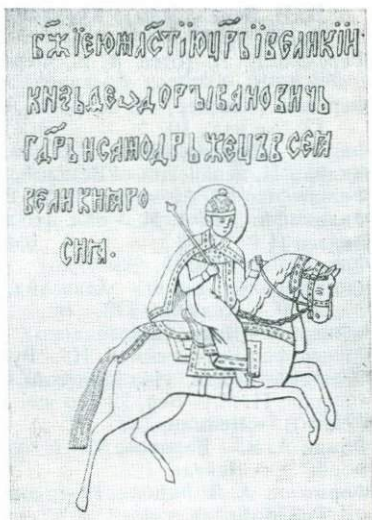 бж҃їеюмлс҃тїюцр҃ьївеликїи
кнѧзьѳеѡдоръївановичь
гдр҃ьисамодрьжецъвсеѧ
великиѧро
сиѧ·